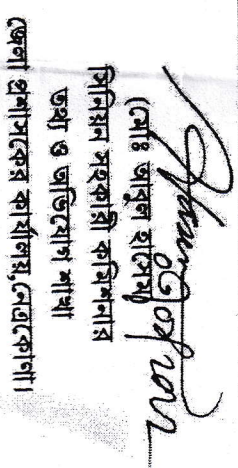 (মোঃ আবুল হাসেম)
সিনিয়র সহকারী কমিশনার
তথ্য ও অভিযোগ শাখা
জেলা প্রশাসকের কার্যালয়,নেত্রকোণা।